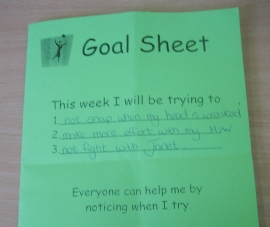 Goal Sheet
This week I will be trying to
1. not snap when my head is wrecked
2. make more effort with my H/W
3. not fight with Janet
Everyone can help me by
noticing when I try